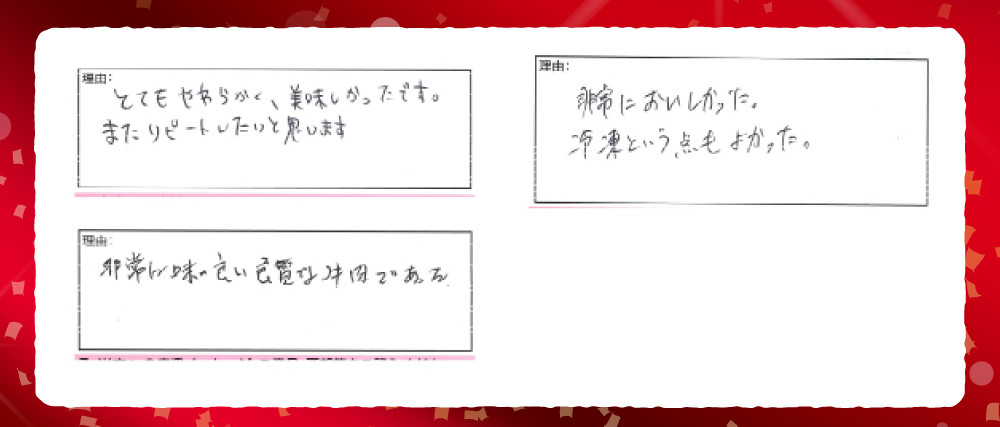 理由:
とてもやわらかく、美味しかったです。
またリピートしたいと思います
理由:
非常においしかった。
冷凍という点もよかった。
理由:
非常に味の良い良質な牛肉である